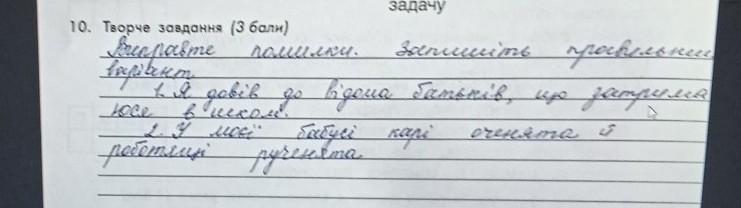 задачу
10. Творче завдання (3 бали)
Виправте помилки. Запишіть правильний
варіант.
1. Я довів до відома батьків, що затрима
юсе в школі.
2. У моєї бабусі карі оченята й
роботящі рученята